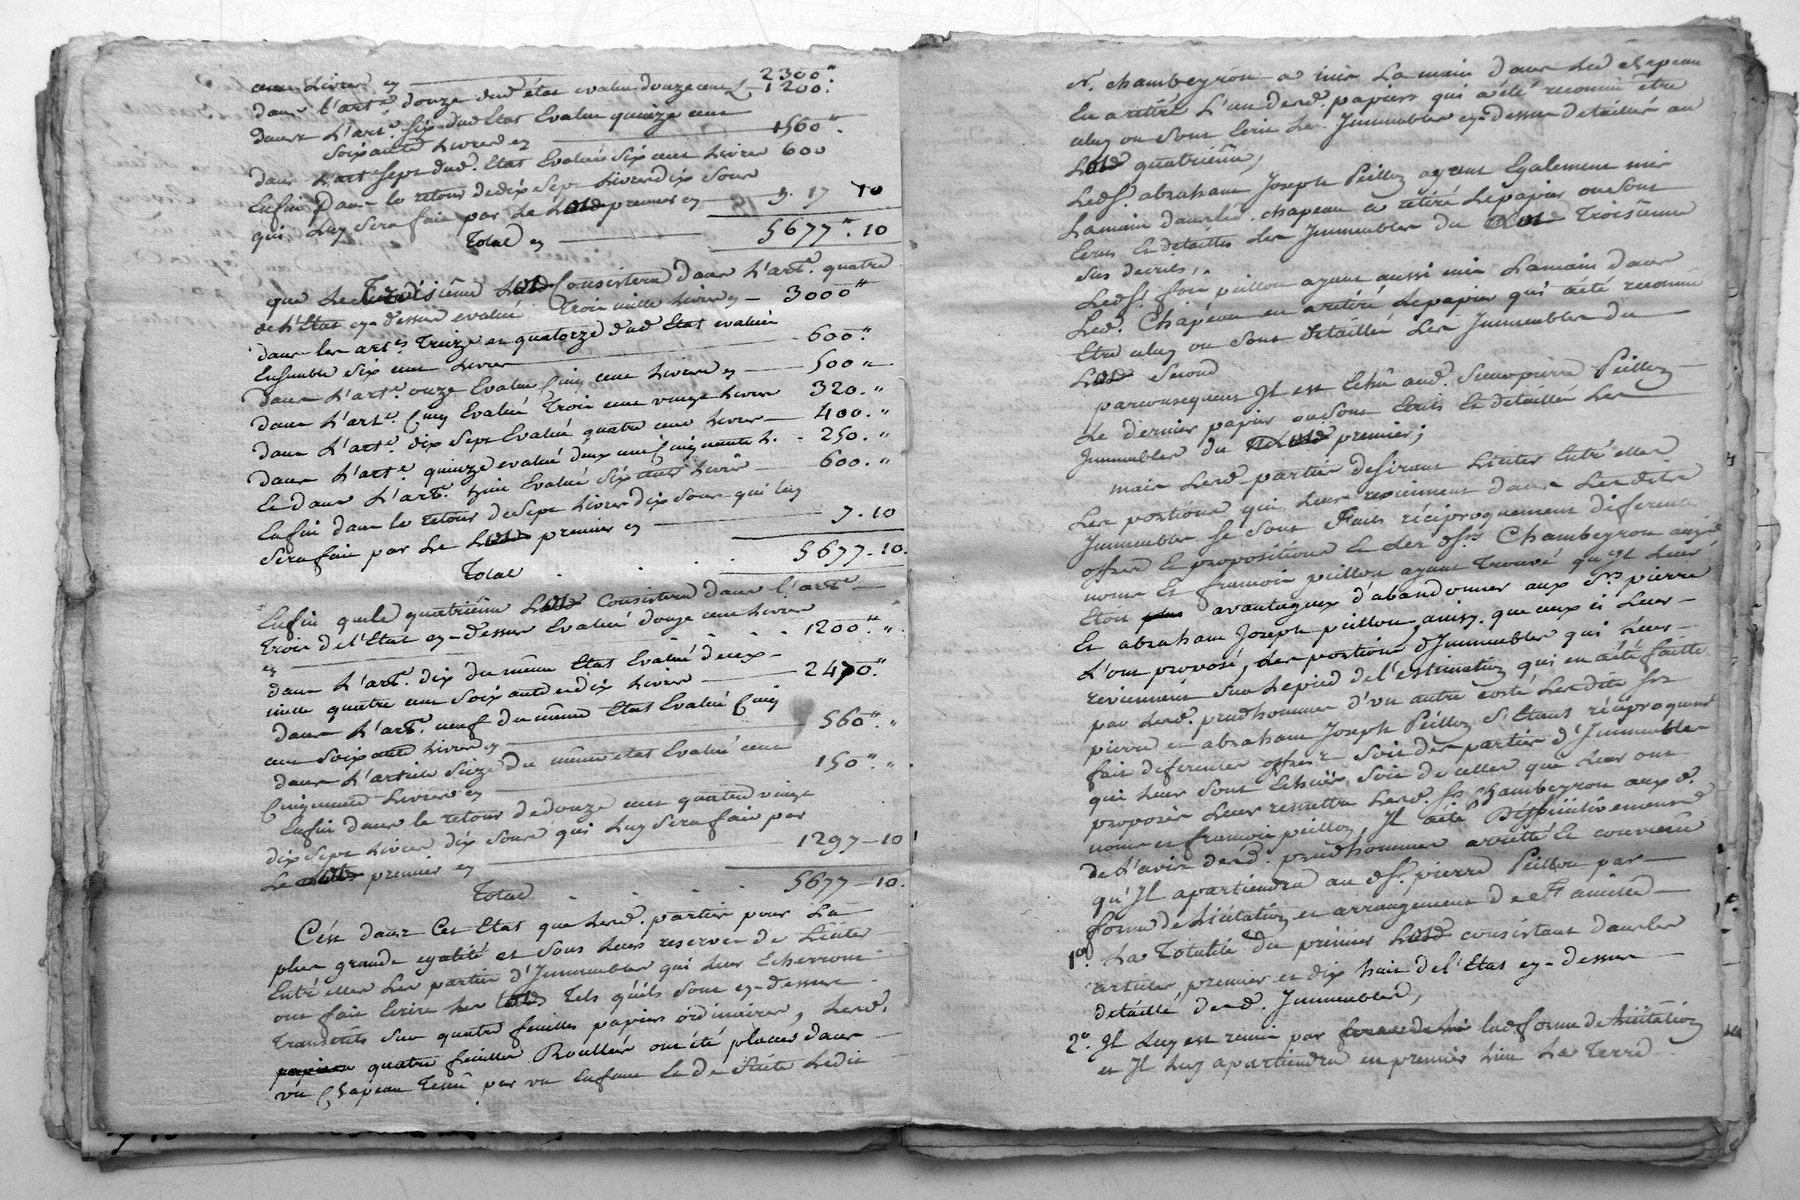 cent Livres cy 2300"
dans l'art.e douze dud état evalué douze cent L 1200"
dans L'art. Six dud Etat Evalué quinze cent
Soixante Livres cy 1560"
dans L'art Sept dud. Etat Evalué Six cent Livres 600
Enfin Dans le retour de dix Sept Livres dix Sous
qui Luy Sera fait par Le Lot premier cy 17 10
Total cy 5677". 10
que Le Troisième Lot Consistera Dans L'art.e quatre
de L'Etat cy-dessus evalué Trois mille Livres cy 3000"
dans les art.s Treize et quatorze dud Etat evalué
Ensemble Six cent Livres 600"
dans L'art.e onze Evalué Cinq cent Livres cy 500 "
Dans L'art.e Cinq Evalué Trois cent vingt Livres 320. "
Dans L'art.e dix Sept Evalué quatre cent Livres 400. "
Dans L'art.e quinze evalué deux cent Cinquante L. 250. "
Et dans L'art.e huit Evalué Six cent Livres 600. "
Enfin dans le retour de Sept Livres dix Sous qui luy
Sera fait par Le Lot premier cy 7. 10
Total 5677-10.
Enfin que le quatrième Lot Consistera dans l'art.e
Trois de l'Etat cy-dessus Evalué douze cent Livres
cy 1200". "
dans L'art.e dix du même Etat Evalué deux
mille quatre cent Soixante et dix Livres 2470."
dans L'art.e neuf du même Etat Evalué Cinq
cent Soixante Livres cy 560". "
dans L'article Seize du même etat Evalué cent
Cinquante Livres cy 150". "
Enfin dans le retour de douze cent quatre vingt
dix Sept Livres dix Sous qui Luy Sera fait par
Le Lot premier cy 1297-10
Total 5677-10.
C'est dans Cet Etat que Lesd. parties pour La
plus grande egalité et Sous Leurs reserves de Liciter
Entré elles Les parties d'Immeubles qui Leur Echerront
ont fait Ecrire Les Lots Tels qu'ils Sont cy-dessus
Transcrits Sur quatre feuilles papiers ordinaires, Lesd.
papiers quatre feuilles Roullées ont été placées dans
un Chapeau Tenu par un Enfant Et de Suite Ledit
S.r Chambeyron a mis La main dans Led chapeau
En a retiré L'un desd. papiers qui a été reconnu être
celuy ou Sont Ecrits Les Immeubles cy-dessus detaillés au
Lot quatrième,
Led S.r abraham Joseph Peillon ayant Egalement mis
La main dans led. chapeau a retiré Le papier ou Sont
Ecrits Et détaillés Les Immeubles du Lot Troisième
Sus decrits,
Led S.r fois peillon ayant aussi mis La main dans
Led. Chapeau en a retiré Le papier qui a été reconnu
Etre celuy ou Sont detaillés Les Immeubles du
Lot Second
par consequent Il est Echû aud. Sieur pierre Peillon
Le dernier papier ou Sont Ecrits Et détaillés Les
Immeubles du Lot premier;
mais Lesd. parties desirant Liciter Entré elles
Les portions qui Leur reviennent dans Lesdits
Immeubles Se Sont Faits réciproquement diferentes
offres et propositions Et Les d S.rs Chambeyron aux d
noms Et francois peillon ayant Trouvé qu'Il Leur
Etoit avantageux d'abandonner aux S.rs pierre
Et abraham Joseph peillon, ainsy que ceux ci Leur
L'ont proposé, Les portions d'Immeubles qui Leur
reviennent Sur Le pied de l'estimation qui en a été faitte
par Lesd. prudhommes d'un autre costé Lesdits S.rs
pierre et abraham Joseph Peillon S'Etant réciproquement
fait diferentes offres Soit des parties d'Immeubles
qui Leur Sont Echues Soit de celles que Leur ont
proposées Leur remettre Lesd. S.rs Chambeyron aux d.
noms et francois peillon, Il a été Deffinitivement
de L'avis desd. prudhommes arretté Et convenû
qu'Il apartiendra au d S.r pierre Peillon par
forme de Licitation et arrangement De Famille
1o. La Totalité du premier Lot consistant dans les
articles, premier et dix huit de l'Etat cy-dessus
detaillé desd. Immeubles,
2o. Il Luy est remis par lad forme de Licitation
et Il Luy apartiendra en premier Lieu La Terre